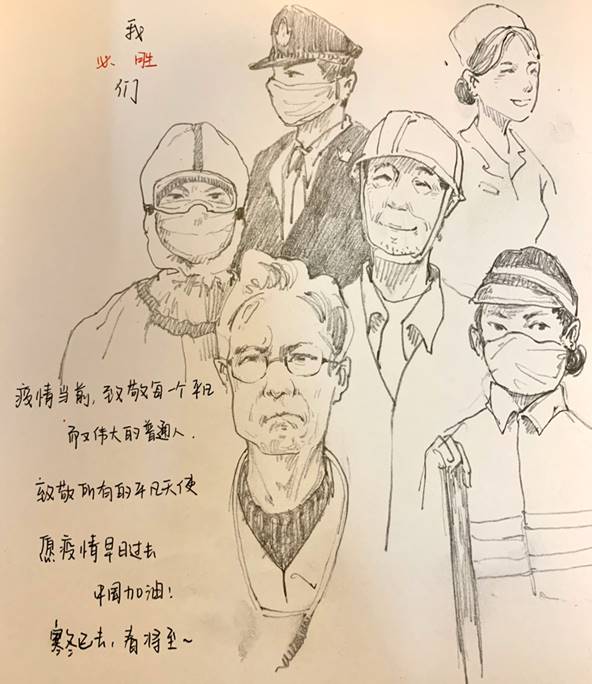 我
必 胜
们
疫情当前,致敬每一个平凡
而又伟大的普通人.
致敬所有的平凡天使
愿疫情早日过去
中国加油!
寒冬已去,春将至~